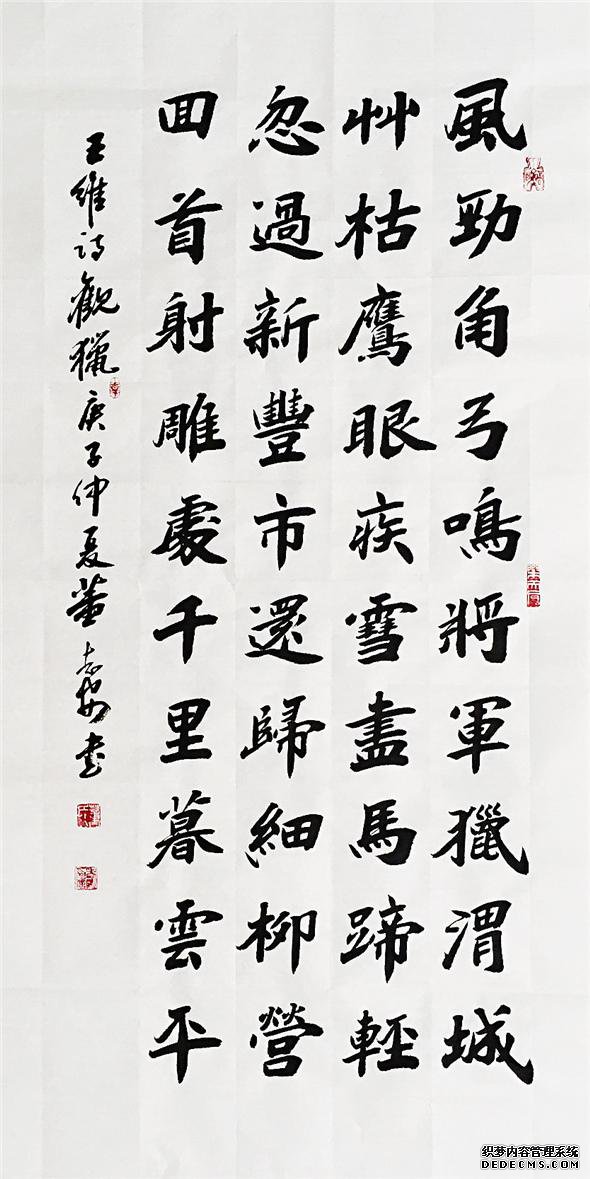 風勁角弓鳴將軍獵渭城
艸枯鷹眼疾雪盡馬蹄輕
忽過新豐市還歸細柳營
回首射雕處千里暮雲平
王維詩觀獵庚子仲夏董志書
织梦内容管理系统
DEDECMS.COM